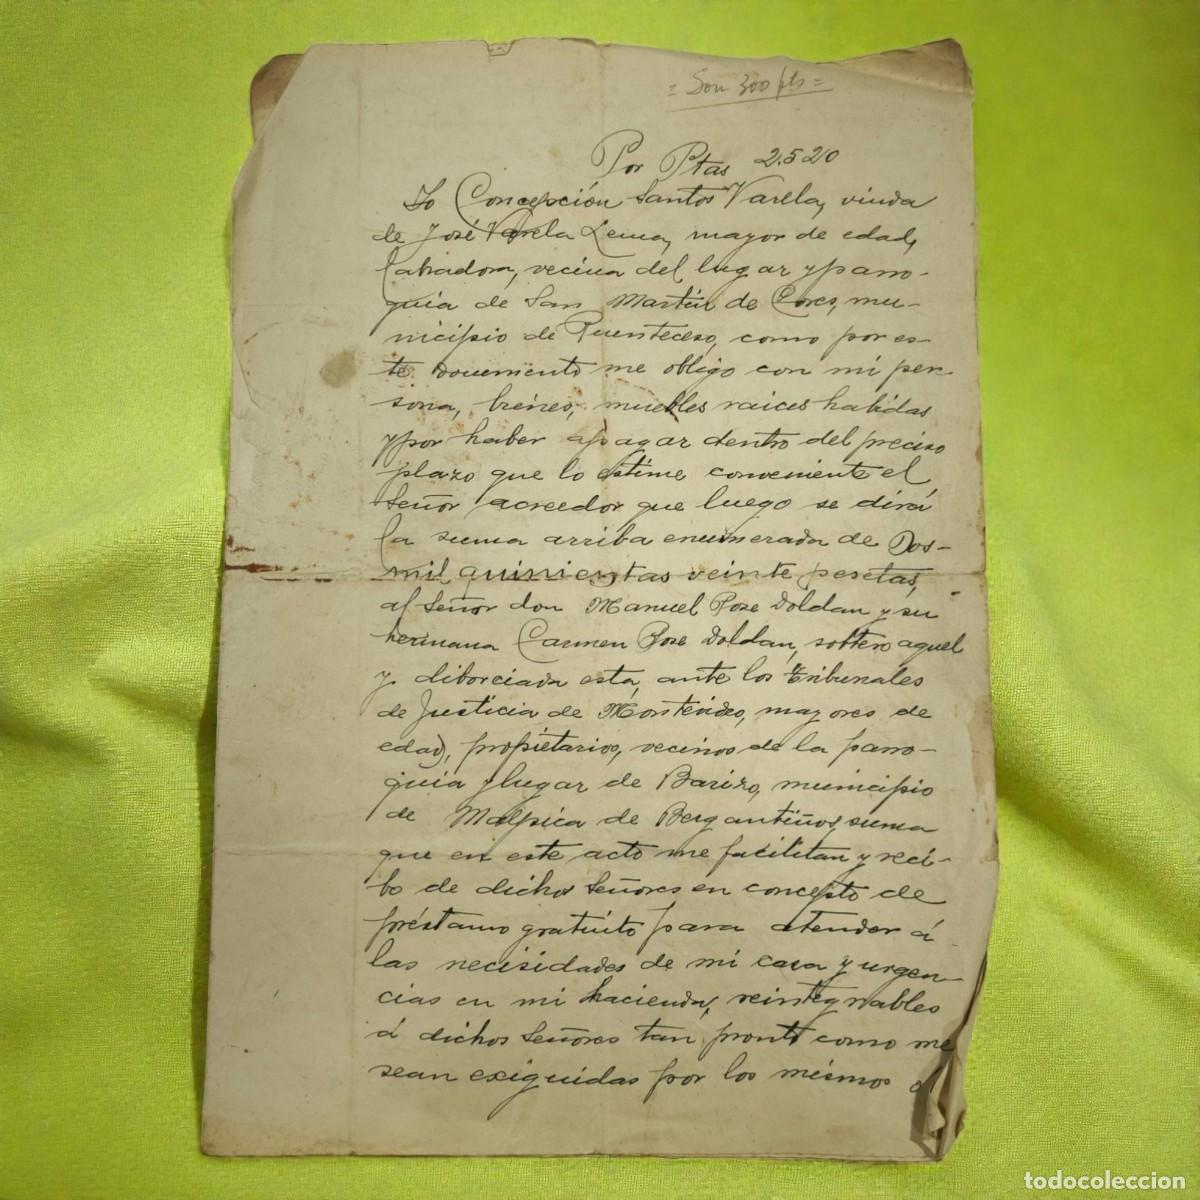 = Son 300 pts =
Por Ptas 2.520
Yo Concepción Santos Varela, viuda
de José Varela Lema, mayor de edad,
labradora, vecina del lugar y parro-
quia de San Martin de Cores, mu-
nicipio de Puenteceso, como por es-
te documento me obligo con mi per-
sona, bienes, muebles raices habidas
y por haber apagar dentro del preciso
plazo que lo estime conveniente el
Señor acreedor que luego se dirá
la suma arriba enumerada de Dos-
mil quinientas veinte pesetas,
al Señor don Manuel Pose Doldan y su
hermana Carmen Pose Doldán, soltero aquel
y diborciada esta, ante los tribunales
de Justicia de Montevideo, mayores de
edad, propietarios, vecinos de la parro-
quia y lugar de Barizo, municipio
de Malpica de Bergantiños, suma
que en este acto me facilitan y reci-
bo de dichos Señores en concepto de
préstamo gratuito para atender á
las necisidades de mi casa y urgen-
cias en mi hacienda, reintegrables
á dichos Señores tan pronto como me
sean exiguidas por los mismos
todocoleccion